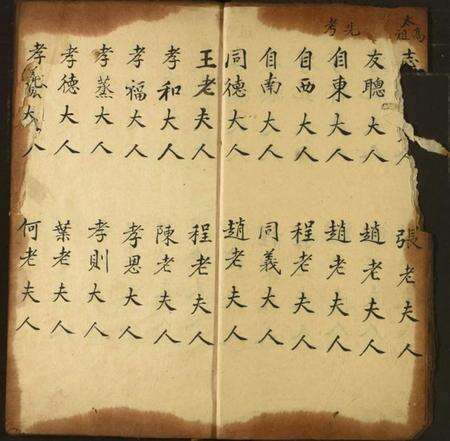 太高祖
先考
志人
張老夫人
友聰大人
趙老夫人
自東大人
趙老夫人
自西大人
程老夫人
自南大人
同義大人
同德大人
趙老夫人
王老夫人
程老夫人
孝和大人
陳老夫人
孝福大人
孝恩大人
孝蒸大人
孝則大人
孝德大人
葉老夫人
孝義大人
何老夫人